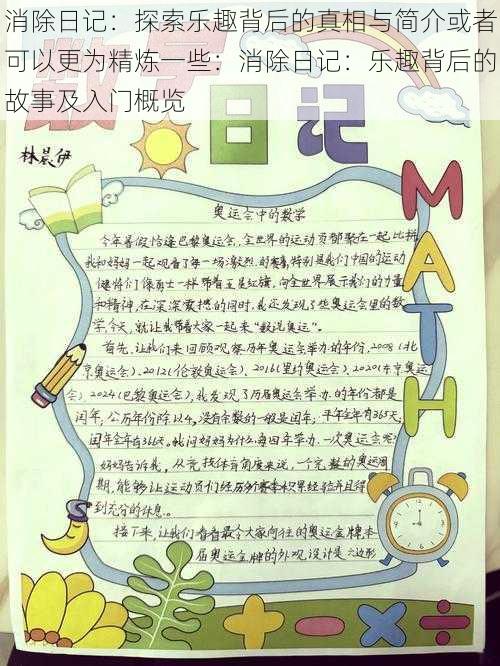 消除日记：探索乐趣背后的真相与简介或者
可以更为精炼一些：消除日记：乐趣背后的
故事及入门概览
数学日记
林晨伊
MATH
奥运会中的数学
今年暑假恰逢巴黎奥运会，全世界的运动员都聚在一起比拼，
我和妈妈一起观看了每一场激烈的赛事，特别是我们中国的运动
健将们像勇士一样带着五星红旗，向全世界展示我们的力量
和精神，在深深震撼的同时，我还发现了些奥运会里的数
学，今天，就让我带着大家一起来“数说奥运”。
首先，让我们来回顾观察历年奥运会举办的年份，2008（北
京奥运会）、2012（伦敦奥运会）、2016（里约奥运会）、2020（东京奥运
会）、2024（巴黎奥运会），我发现了历届奥运会举办的年份都是
闰年，公历年份除以4，没有余数的一般是闰年；平年全年有365天，
闰年全年有366天。我问妈妈为什么每四年举办一次奥运会呢？
妈妈告诉我，从竞技体育角度来说，一个完整的奥运周
期，能够让运动员们经历分赛事积累经验并且得
到充分的休息。
接下来，让我们看看最令大家向往的奥运金牌，本
届奥运金牌的外观设计是六边形